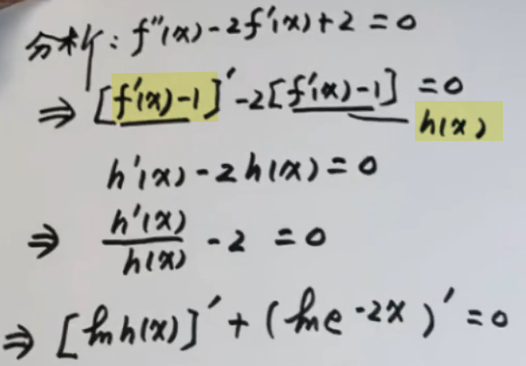 分析: f''(x)-2f'(x)+2=0
⇒ [f'(x)-1]'-2[f'(x)-1]=0
h(x)
h'(x)-2h(x)=0
⇒ h'(x)/h(x) -2=0
⇒ [ln h(x)]'+(ln e^{-2x})'=0